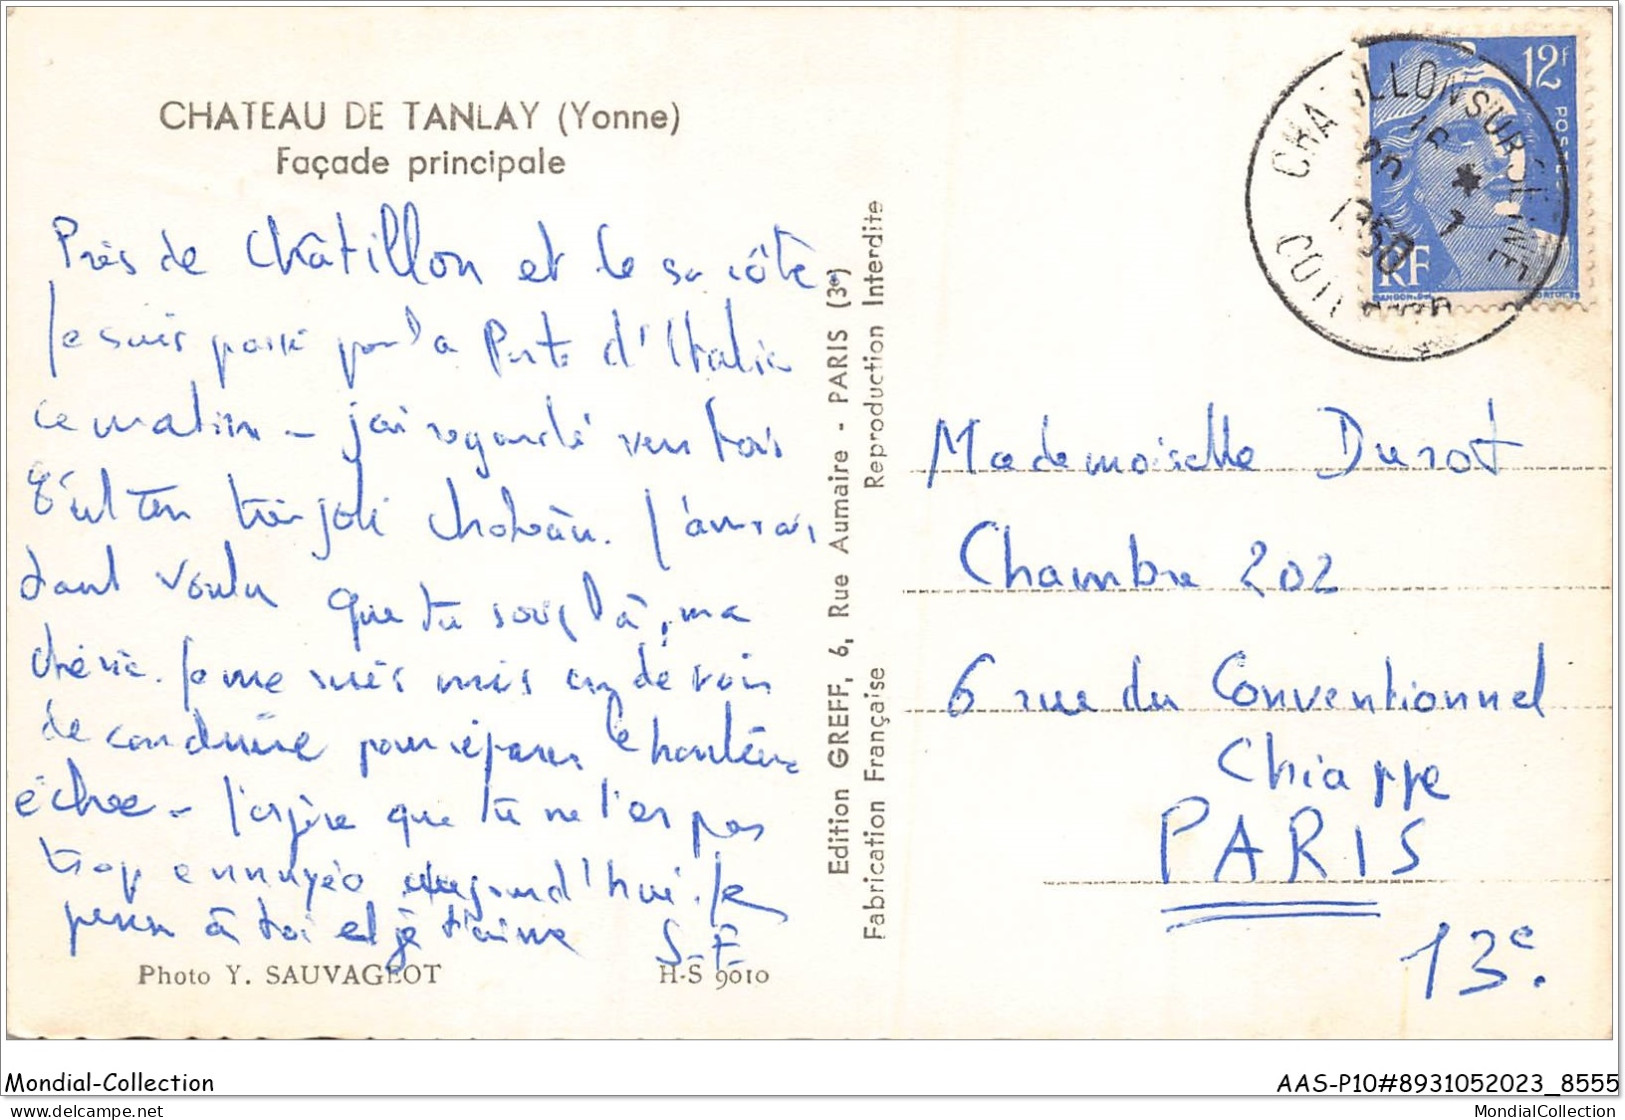 CHATEAU DE TANLAY (Yonne)
Façade principale
Près de Châtillon et de sa côte
Je suis passé par la Porte d'Italie
ce matin - j'ai regardé vers toi
très joli château. J'aurais
tant voulu que tu sois là, ma
chérie. Je me suis mis en devoir
de conduire pour
que tu ne t'es pas
trop ennuyée aujourd'hui. Je
pense à toi et je t'aime S-F
Photo Y. SAUVAGEOT H-S 9010
Edition GREFF, 6, Rue Aumaire - PARIS (3e)
Fabrication Française Reproduction Interdite
12f
POSTES
RF
CHATILLON SUR SEINE
1950
Mademoiselle Durot
Chambre 202
6 rue du Conventionnel
Chiappe
PARIS
13e.
Mondial-Collection AAS-P10#8931052023_8555
www.delcampe.net MondialCollection